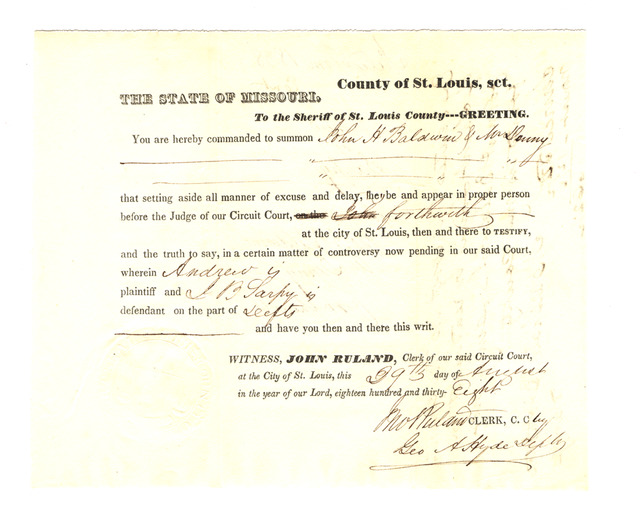 County of St. Louis, sct.
THE STATE OF MISSOURI.
To the Sheriff of St. Louis County---GREETING.
You are hereby commanded to summon John H Baldwin & Mr Denny
" "
"
that setting aside all manner of excuse and delay, they be and appear in proper person
before the Judge of our Circuit Court, on the John forthwith
at the city of St. Louis, then and there to TESTIFY,
and the truth to say, in a certain matter of controversy now pending in our said Court,
wherein Andrew is
plaintiff and J B Sarpy is
defendant on the part of Defts
and have you then and there this writ.
WITNESS, JOHN RULAND, Clerk of our said Circuit Court,
at the City of St. Louis, this 29th day of August
in the year of our Lord, eighteen hundred and thirty- Eight
Jno Ruland CLERK, C. C by
Geo A Hyde Dept